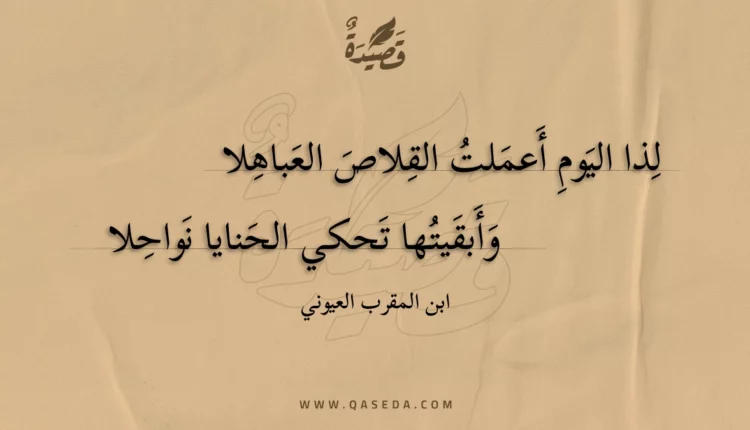 قَصِيدَةٌ
لِذا اليَومِ أَعمَلتُ القِلاصَ العَباهِلا
وَأَبقَيتُها تَحكي الحَنايا نَواحِلا
ابن المقرب العيوني
WWW.QASEDA.COM